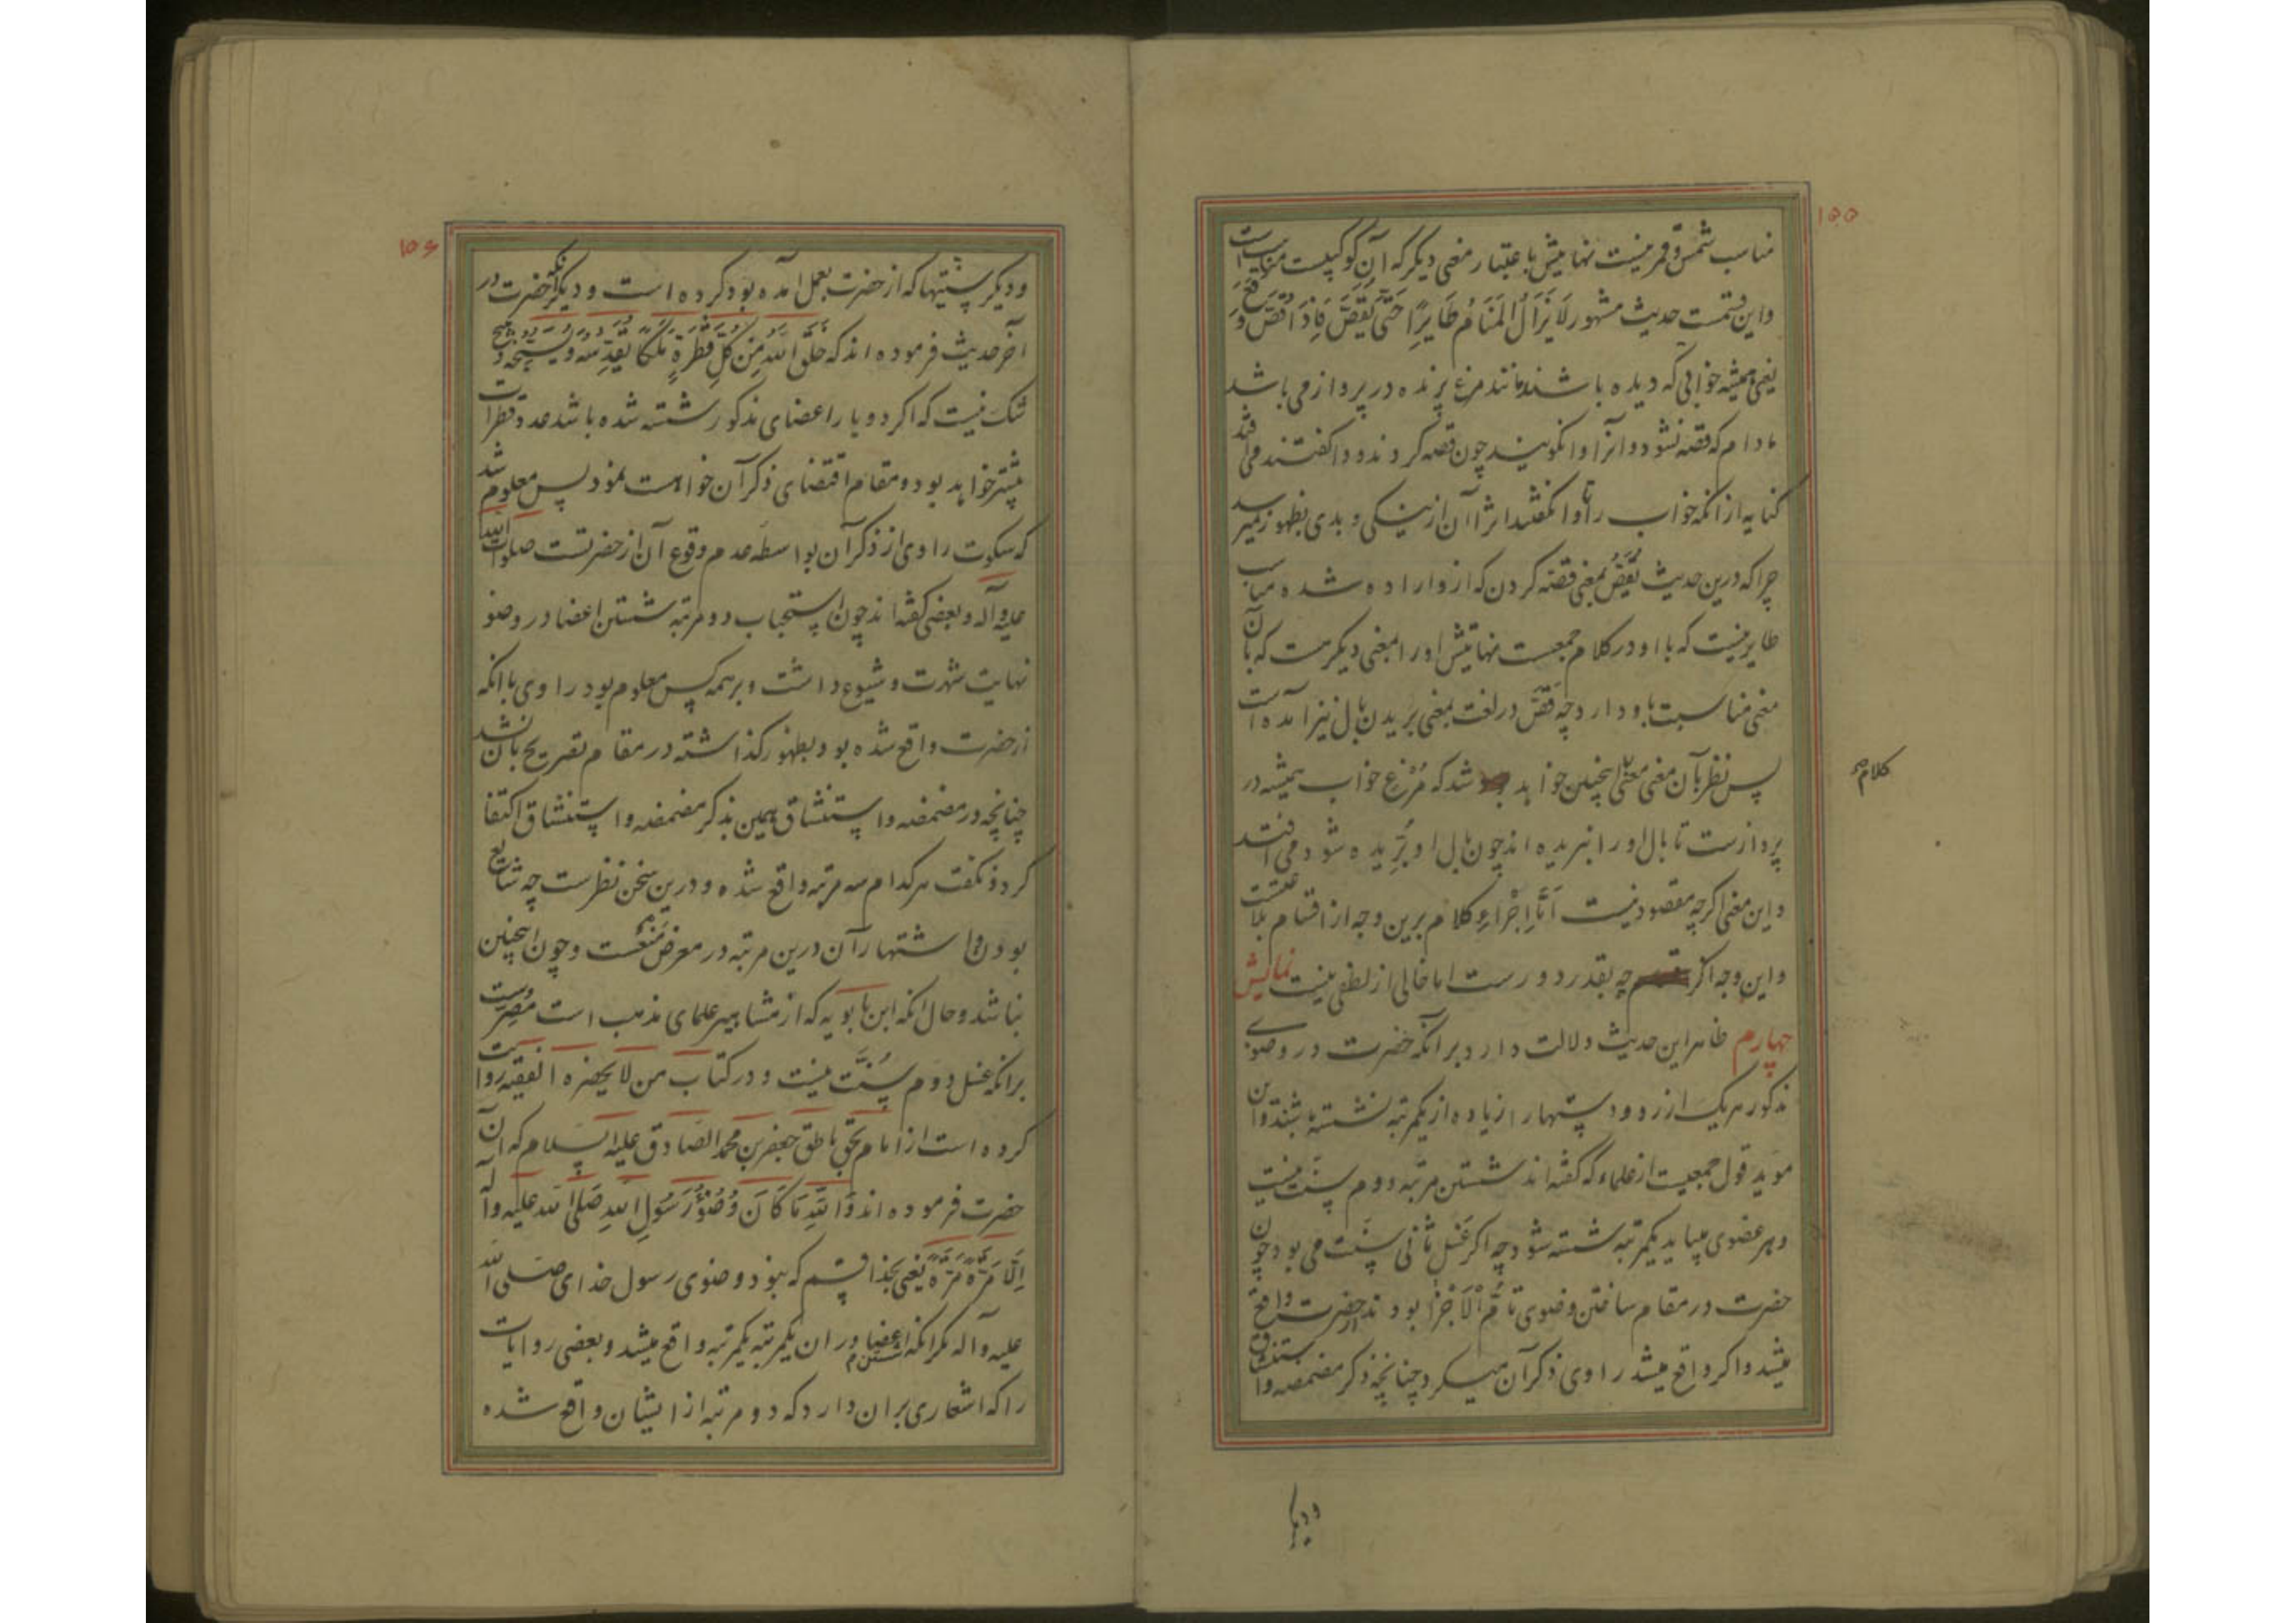 ۱۵۵
مناسب شمس و قمر نیست نهایتش باعتبار معنی دیگر که آن کوکبست مناسبست
واین قسمت حدیث مشهور لَا یَزَالُ المَنَامُ طَایِرًا حَتّیٰ یُقَصَّ فَاِذَا قُصَّ وَقَعَ
یعنی همیشه خوابی که دیده باشند مانند مرغ پرنده در پرواز می باشد
مادام که قصه نشود و آنرا وانگویند چون قصه کردند و واگفتند می افتد
کنایه از انکه خواب را تا وانگفتند اثر آن از نیکی و بدی بظهور نمیرسد
چرا که درین حدیث یُقَصُّ بمعنی قصّه کردن که ازو اراده شده مناسب
طایر نیست که با او در کلام جمعست نهایتش او را بمعنی دیگر هست که بآن
معنی مناسبت باو دارد چه قَصّ در لغت بمعنی بریدن بال نیز آمده است
پس نظر بآن معنی معنی اینچنین خواهد شد که مُرغ خواب همیشه در
کلام
پروازست تا بال او را نبریده اند چون بال او بُرّیده شود می افتد
واین معنی اگرچه مقصود نیست اَمّا اِجْرَاءِ کلام برین وجه از اقسام بلاغتست
واین وجه اگر چه بقدر دورست اما خالی از لطفی نیست نمایش
چهارم ظاهر این حدیث دلالت دارد بر آنکه حضرت در وضوی
مذکور هریک از رو و دستها را زیاده از یکمرتبه نشسته باشند و این
موید قول جمعیست از علماء که گفته اند شستن مرتبه دوم سنّت نیست
و هر عضوی میباید یکمرتبه شسته شود چه اگر غَسل ثانی سنّت می بود چون
حضرت در مقام ساختن وضوی تامُّ الْاَجْزا بودند از حضرت واقع
میشد و اگر واقع میشد راوی ذکر آن میکرد چنانچه ذکر مضمضه و استنشاق
ودیگر
۱۵۶
ودیگر سنّتیها که از حضرت بعمل آمده بود کرده است و دیگر آنکه حضرت در
آخر حدیث فرموده اند که خَلَقَ اللّهُ مِنْ کُلِّ قَطْرَةٍ مَلَکًا یُقَدِّسُهُ وَیُسَبِّحُهُ و هیچ
شک نیست که اگر دو بار اعضای مذکور شسته شده باشد عدد قطرات
بیشتر خواهد بود و مقام اقتضای ذکر آن خواهست نمود پس معلوم شد
که سکوت راوی از ذکر آن بواسطه عدم وقوع آن از حضرتست صلوات اللّه
علیه وآله و بعضی گفته اند چون استحباب دو مرتبه شستن اعضا در وضو
نهایت شهرت و شیوع داشت و بر همه کس معلوم بود راوی با انکه
از حضرت واقع شده بود بظهور گذاشته در مقام تصریح بآن نشد
چنانچه در مضمضه و استنشاق همین بذکر مضمضه و استنشاق اکتفا
کرد و نگفت هر کدام سه مرتبه واقع شده و درین سخن نظرست چه شایع
بودن و اشتهار آن درین مرتبه در معرض منعست و چون اینچنین
نباشد و حال انکه ابن بابویه که از مشاهیر علمای مذهب است مُصِرّست
بر انکه غسل دوم سُنَّت نیست و در کتاب من لا یحضره الفقیه روایت
کرده است از امام بحق ناطق جعفر بن محمد الصّادق علیه السلام که آن
حضرت فرموده اند وَاللّهِ مَا کَانَ وُضُوْءُ رَسُولِ اللّهِ صَلَّی اللّه علیه وآله
اِلّا مَرَّةً مَرَّةً یعنی بخدا قسم که نبود وضوی رسول خدای صلی اللّه
علیه وآله مگر انکه شستن اعضا در ان یکمرتبه یکمرتبه واقع میشد و بعضی روایات
را که اشعاری بران دارد که دو مرتبه از ایشان واقع شده